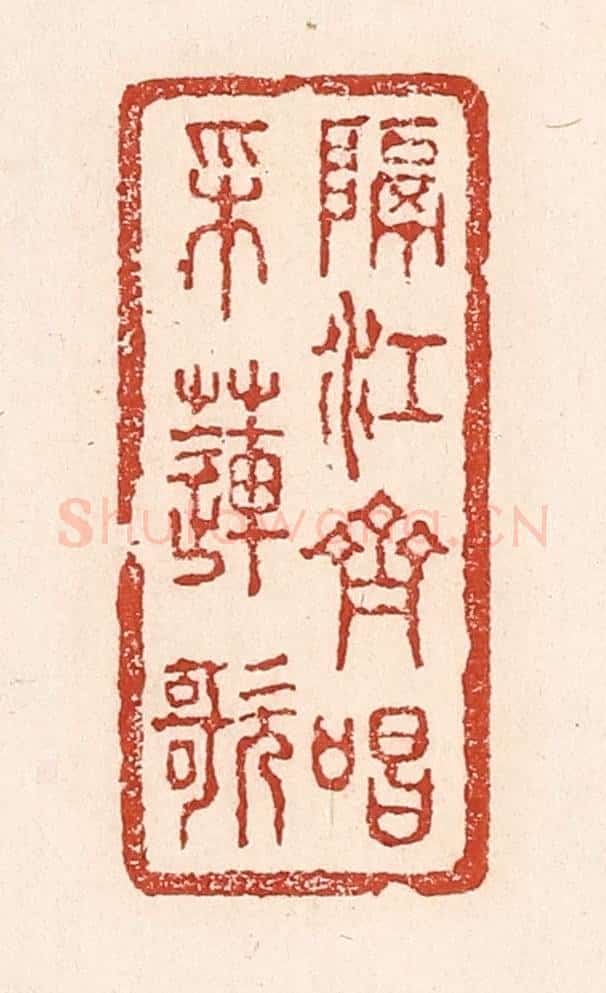 隔江齊唱
采蓮歌
Shufawang.CN